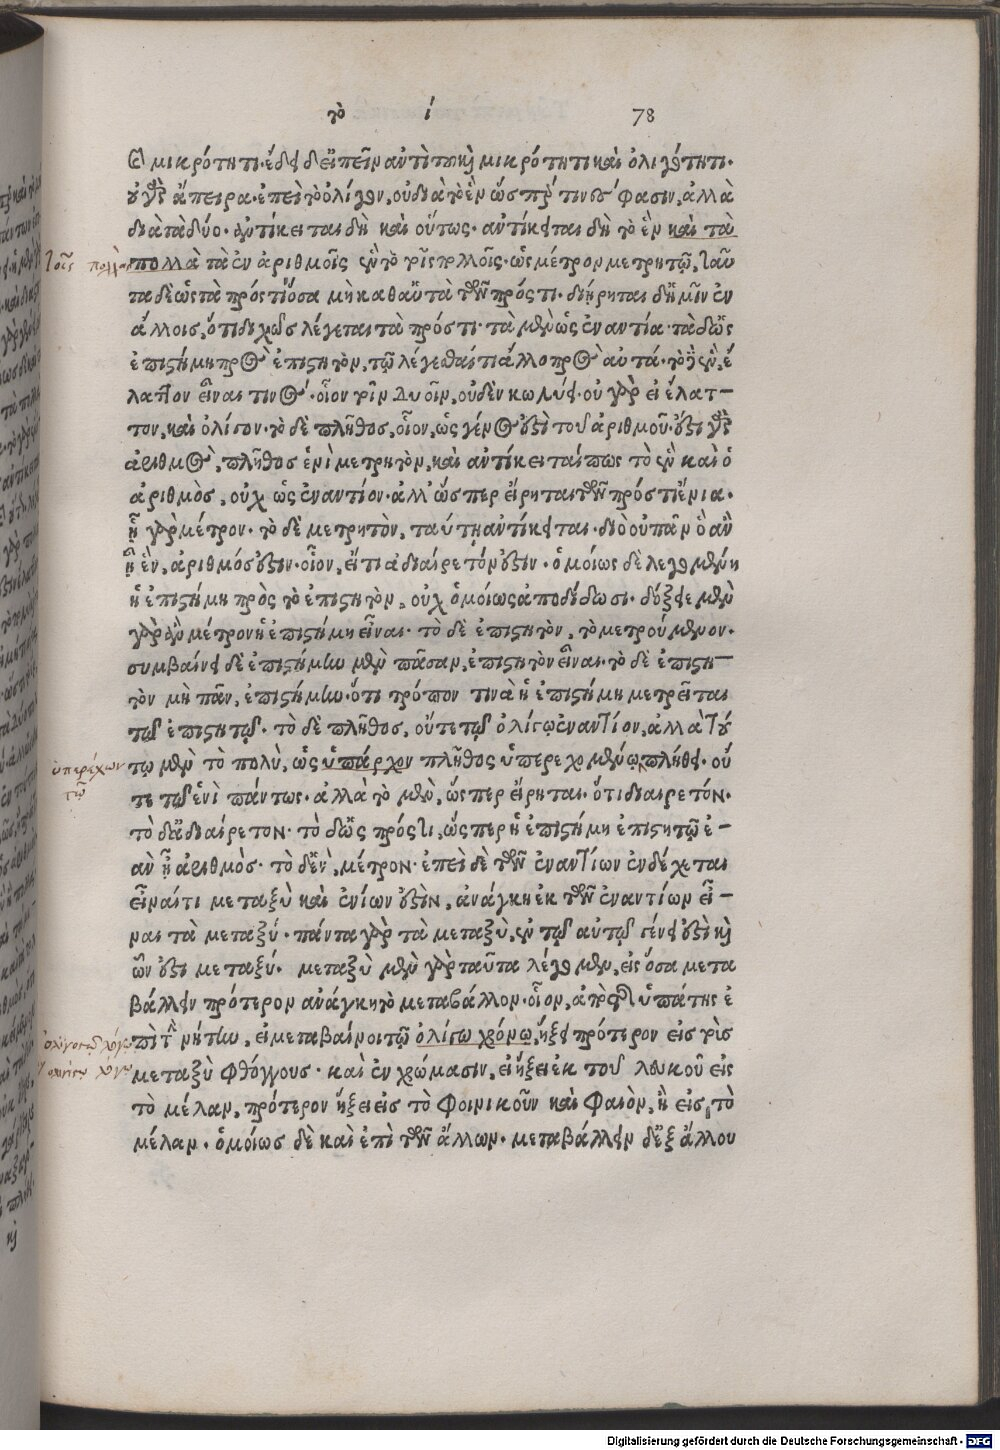 τὸ ί 78
μικρότητι. ἔδει δ εἰπεῖν ἀντὶ τοῦ καὶ μικρότητι καὶ ὀλιγότητι.
οὐ γὰρ ἄπειρα. ἐπεὶ τὸ ὀλίγον, οὐ διὰ τὸ ἓν ὥσπερ τινές φασιν, ἀλλὰ
διὰ τὰ δύο. ἀντίκειται δὴ καὶ οὕτως. ἀντίκειται δὴ τὸ ἓν καὶ τὰ
πολλὰ τὰ ἐν ἀριθμοῖς ἓν τὸ τοῖς πολλοῖς. ὡς μέτρον μετρητῷ, ταῦ
τα δὲ ὡς τὰ πρόστι ὅσα μὴ καθαὑτὰ τῶν πρόστι. διῄρηται δ ἡμῖν ἐν
ἄλλοις, ὅτι διχῶς λέγεται τὰ πρόστι. τὰ μὲν ὡς ἐναντία. τὰ δ ὡς
ἐπιστήμη πρὸς ἐπιστητὸν, τῷ λέγεσθαί τι ἄλλο πρὸς αὐτά. τὸ δὲ ἓν, ἔ
λαττον εἶναι τινὸς. οἷον τοῖν δυοῖν, οὐδὲν κωλύει. οὐ γὰρ εἰ ἔλατ-
τον, καὶ ὀλίγον. τὸ δὲ πλῆθος, οἷον, ὡς γένος ἐστὶ τοῦ ἀριθμοῦ. ἔστι γὰρ
ἀριθμὸς, πλῆθος ἑνὶ μετρητὸν, καὶ ἀντίκειταί πως τὸ ἓν καὶ ὁ
ἀριθμὸς, οὐχ ὡς ἐναντίον. ἀλλ' ὥσπερ εἴρηται τῶν πρόστι ἔνια.
ᾗ γὰρ μέτρον. τὸ δὲ μετρητὸν, ταύτῃ ἀντίκειται. διὸ οὐ πᾶν ὃ ἂν
ᾖ ἓν, ἀριθμός ἐστιν. οἷον, εἴ τι ἀδιαίρετόν ἐστιν. ὁμοίως δὲ λεγομένη
ἡ ἐπιστήμη πρὸς τὸ ἐπιστητὸν, οὐχ ὁμοίως ἀποδίδωσι. δόξειε μὲν
γὰρ ἂν μέτρον ἡ ἐπιστήμη εἶναι. τὸ δὲ ἐπιστητὸν, τὸ μετρούμενον.
συμβαίνει δὲ ἐπιστήμην μὲν πᾶσαν, ἐπιστητὸν εἶναι. τὸ δὲ ἐπιστη-
τὸν μὴ πᾶν, ἐπιστήμην. ὅτι τρόπον τινὰ ἡ ἐπιστήμη μετρεῖται
τῷ ἐπιστητῷ. τὸ δὲ πλῆθος, οὔτε τῷ ὀλίγῳ ἐναντίον, ἀλλὰ τού
τῳ μὲν τὸ πολὺ, ὡς ὑπάρχον πλῆθος ὑπερεχομένῳ πλήθει. οὔ
τε τῷ ἑνὶ πάντως. ἀλλὰ τὸ μὲν, ὥσπερ εἴρηται. ὅτι διαιρετόν.
τὸ δ ἀδιαίρετον. τὸ δ ὡς πρόστι, ὥσπερ ἡ ἐπιστήμη ἐπιστητῷ ἐ-
ὰν ᾖ ἀριθμὸς. τὸ δ ἓν, μέτρον. ἐπεὶ δὲ τῶν ἐναντίων ἐνδέχεται
εἶναί τι μεταξὺ καὶ ἐνίων ἐστὶν, ἀνάγκη ἐκ τῶν ἐναντίων εἶ-
ναι τὰ μεταξύ. πάντα γὰρ τὰ μεταξὺ, ἐν τῷ αὐτῷ γένει ἐστὶ καὶ
ὧν ἐστι μεταξύ. μεταξὺ μὲν γὰρ ταῦτα λέγομεν, εἰς ὅσα μετα
βάλλειν πρότερον ἀνάγκη τὸ μεταβάλλον. οἷον, ἀπὸ τῆς ὑπάτης ἐ
πὶ τὴν νήτην, εἰ μεταβαίνοι τῷ ὀλίγῳ χρόνῳ, ἥξει πρότερον εἰς τοὺς
μεταξὺ φθόγγους. καὶ ἐν χρώμασιν, εἰ ἥξει ἐκ τοῦ λευκοῦ εἰς
τὸ μέλαν, πρότερον ἥξει εἰς τὸ φοινικοῦν καὶ φαιὸν, ἢ εἰς τὸ
μέλαν. ὁμοίως δὲ καὶ ἐπὶ τῶν ἄλλων. μεταβάλλειν δ ἐξ ἄλλου
τοῖς πολλοῖς
ὑπερέχον
τῷ
Digitalisierung gefördert durch die Deutsche Forschungsgemeinschaft - DFG